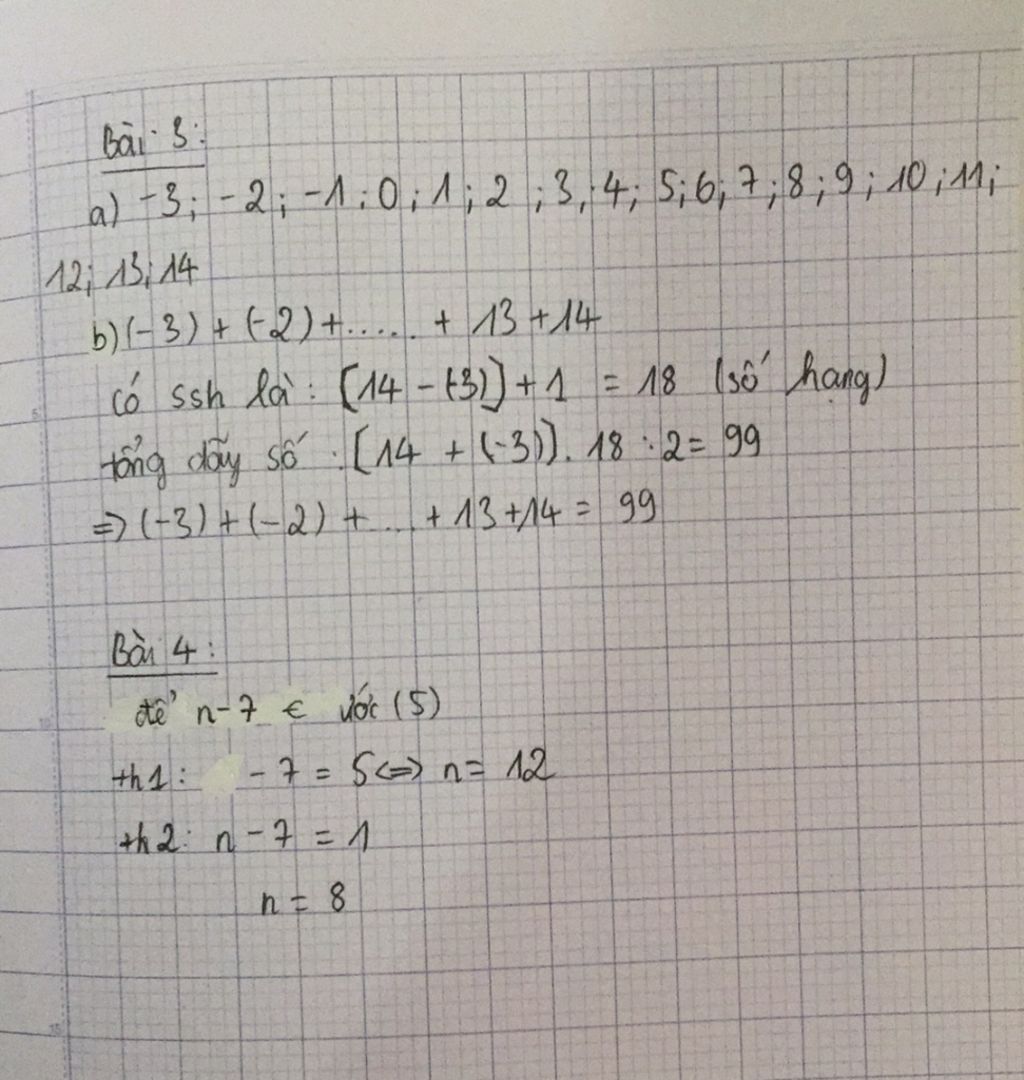 Bài 3:
a) -3; -2; -1; 0; 1; 2; 3; 4; 5; 6; 7; 8; 9; 10; 11;
12; 13; 14
b) (-3) + (-2) + ..... + 13 + 14
có ssh là: [14 - (-3)] + 1 = 18 (số hạng)
tổng dãy số: [14 + (-3)]. 18 : 2 = 99
=> (-3) + (-2) + ... + 13 + 14 = 99
Bài 4:
để n - 7 ∈ ước (5)
th1: - 7 = 5 <=> n = 12
th2: n - 7 = 1
n = 8